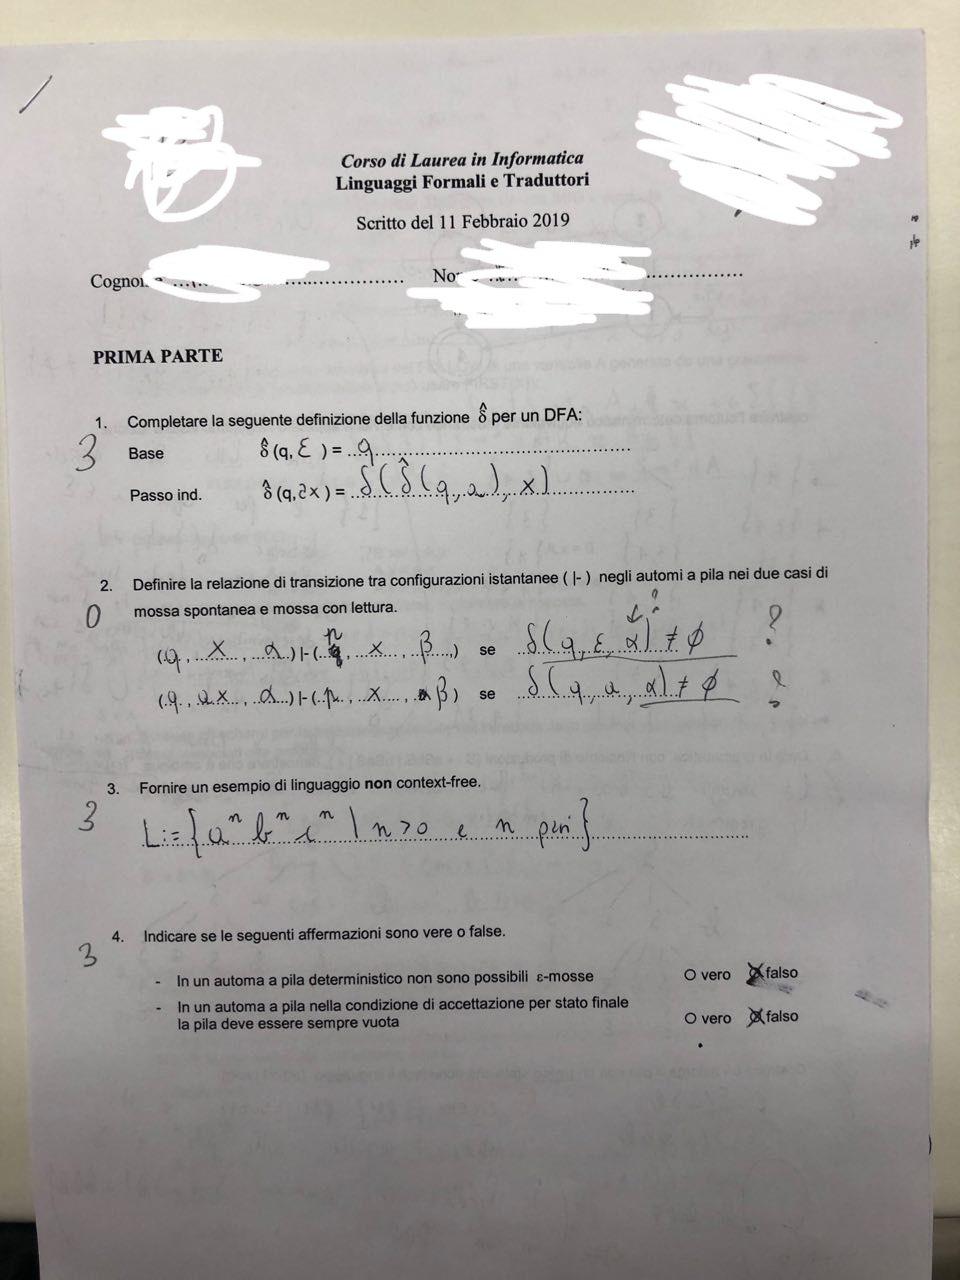 Corso di Laurea in Informatica
Linguaggi Formali e Traduttori
Scritto del 11 Febbraio 2019
PRIMA PARTE
1. Completare la seguente definizione della funzione δ̂ per un DFA:
3
Base δ̂ (q, ε ) = ..q...............................................
Passo ind. δ̂ (q, ax ) = ..δ(δ̂(q,a),x)..............
2. Definire la relazione di transizione tra configurazioni istantanee ( |- ) negli automi a pila nei due casi di
0 mossa spontanea e mossa con lettura.
(q, x, α) |- (p, x, β) se δ(q, ε, α) ≠ ϕ ?
(q, ax, α) |- (p, x, β) se δ(q, a, α) ≠ ϕ ?
3. Fornire un esempio di linguaggio non context-free.
3
L:={aⁿ bⁿ cⁿ | n>0 e n pari}
4. Indicare se le seguenti affermazioni sono vere o false.
3
- In un automa a pila deterministico non sono possibili ε-mosse O vero O falso
- In un automa a pila nella condizione di accettazione per stato finale
la pila deve essere sempre vuota O vero O falso